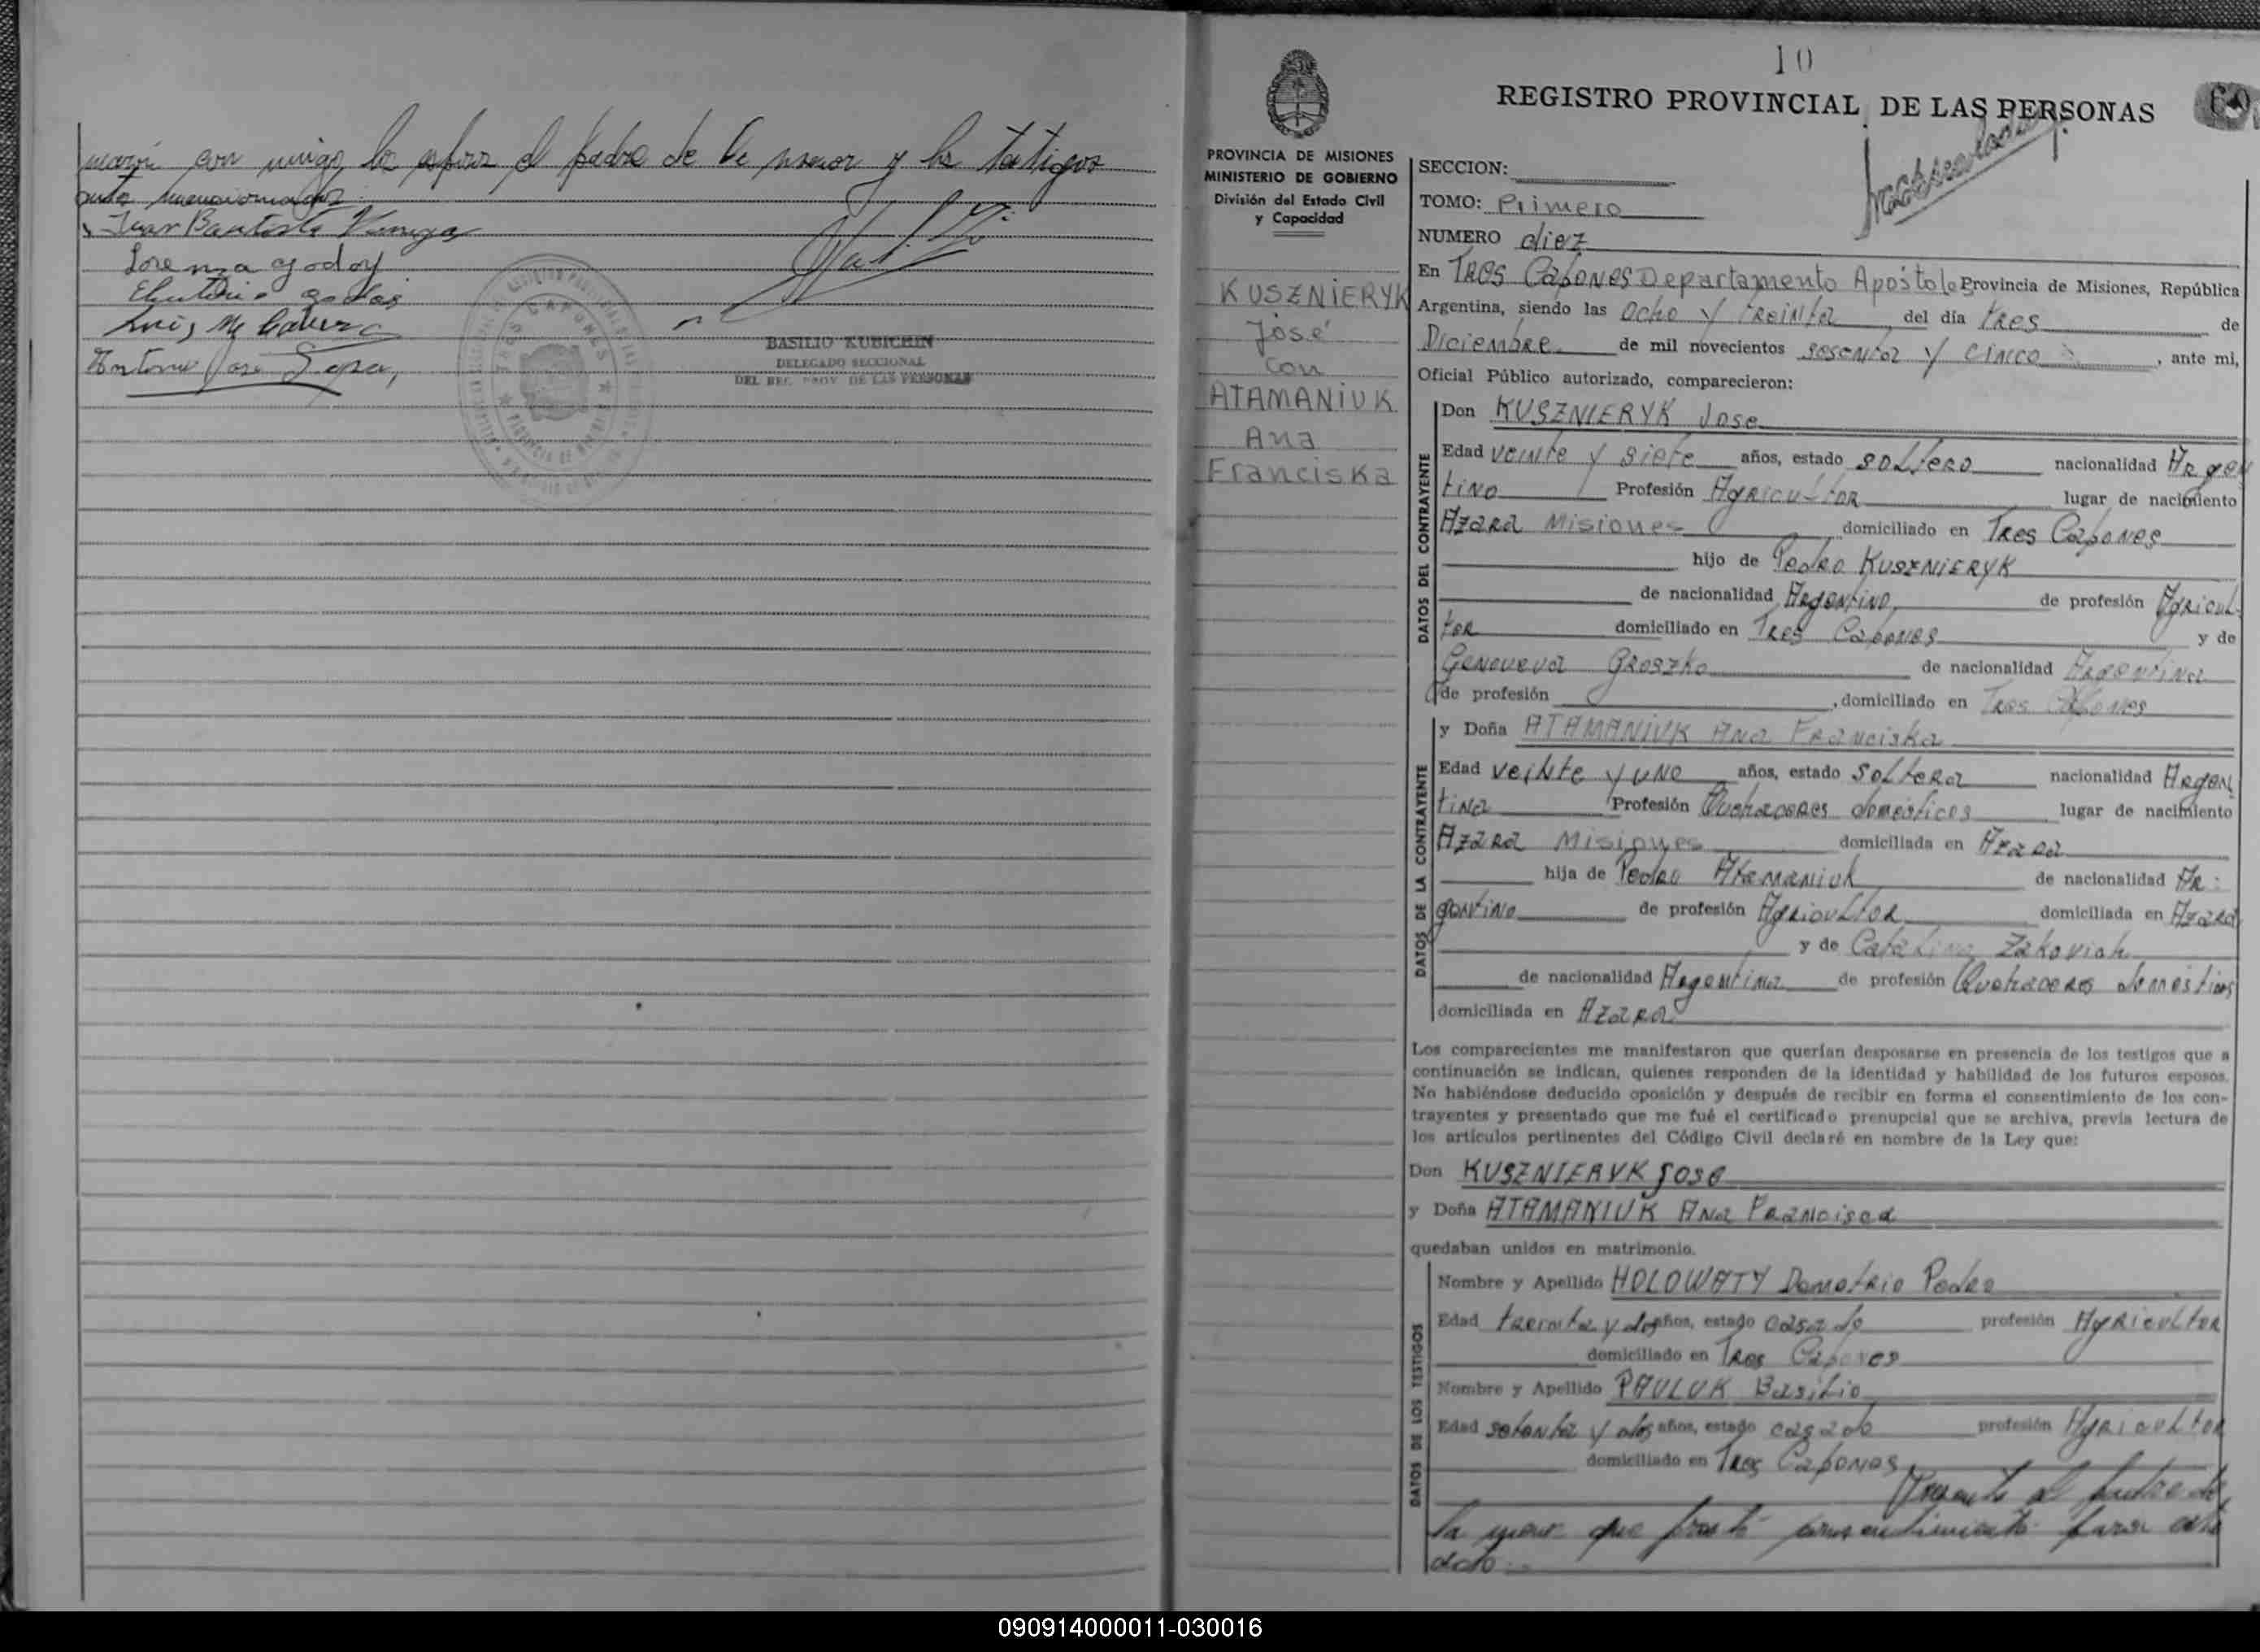 con migo, los esposos el padre de la menor y los testigos
ante mencionados.
Juan Bautista
Lorenza godoy
Antonio José
BASILIO KUBICHEN
DELEGADO SECCIONAL
DEL REG. PROV. DE LAS PERSONAS
TRES CAPONES
10
REGISTRO PROVINCIAL DE LAS PERSONAS
PROVINCIA DE MISIONES
MINISTERIO DE GOBIERNO
División del Estado Civil
y Capacidad
KUSZNIERYK
José
con
ATAMANIUK
Ana
Franciska
SECCION:
TOMO: Primero
NUMERO diez
En TRES CapoNES Departamento Apóstoles Provincia de Misiones, República
Argentina, siendo las Ocho y treinta del día tres de
Diciembre de mil novecientos sesenta y cinco, ante mi,
Oficial Público autorizado, comparecieron:
DATOS DEL CONTRAYENTE
Don KUSZNIERYK Jose
Edad veinte y siete años, estado soltero nacionalidad Argen
tino Profesión Agricultor lugar de nacimiento
Azara Misiones domiciliado en Tres Capones
hijo de Pedro KUSZNIERYK
de nacionalidad Argentino de profesión Agricul-
tor domiciliado en Tres Capones y de
Genoveva Groszko de nacionalidad Argentina
de profesión , domiciliado en Tres Capones
DATOS DE LA CONTRAYENTE
y Doña ATAMANIUK Ana Franciska
Edad veinte y uno años, estado soltera nacionalidad Argen
tina Profesión Quehaceres domésticos lugar de nacimiento
Azara Misiones domiciliada en Azara
hija de Pedro Atamaniuk de nacionalidad Ar-
gentino de profesión Agricultor domiciliada en Azara
y de Catalina Zakovich
de nacionalidad Argentina de profesión Quehaceres domésticos
domiciliada en Azara
Los comparecientes me manifestaron que querían desposarse en presencia de los testigos que a
continuación se indican, quienes responden de la identidad y habilidad de los futuros esposos.
No habiéndose deducido oposición y después de recibir en forma el consentimiento de los con-
trayentes y presentado que me fué el certificado prenupcial que se archiva, previa lectura de
los artículos pertinentes del Código Civil declaré en nombre de la Ley que:
Don KUSZNIERYK Jose
y Doña ATAMANIUK Ana Francisca
quedaban unidos en matrimonio.
DATOS DE LOS TESTIGOS
Nombre y Apellido HOLOWATY Demetrio Pedro
Edad treinta y dos años, estado casado profesión Agricultor
domiciliado en Tres Capones
Nombre y Apellido PAULUK Basilio
Edad setenta y dos años, estado casado profesión Agricultor
domiciliado en Tres Capones
Presente el padre de
la menor que prestó consentimiento para este
acto.
090914000011-030016